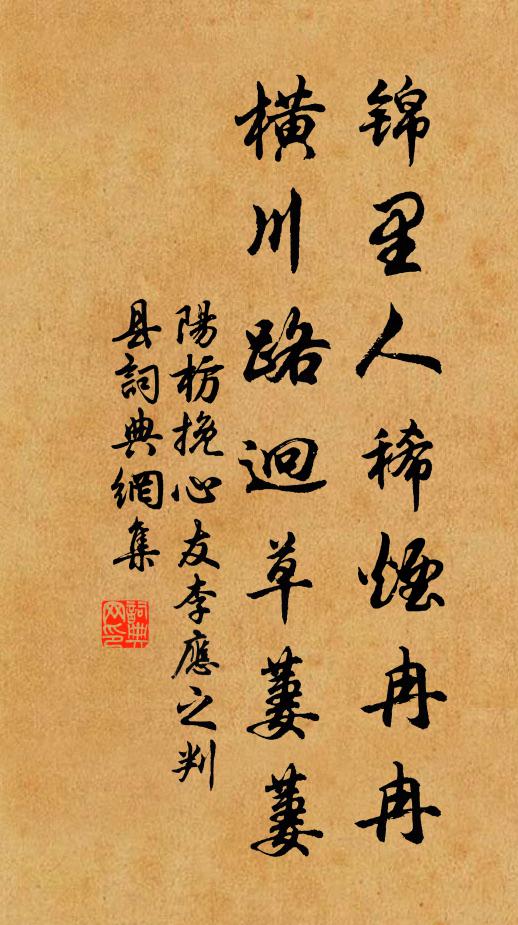 锦里人稀煙冉冉
横川路迥草萋萋
陽枋挽心友李應之判
县詞典網集
詞典网印